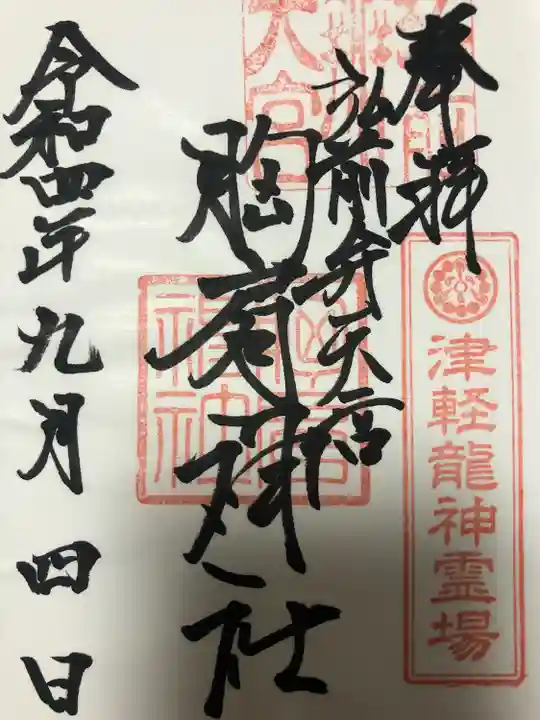 奉拝
津軽龍神霊場
弘前弁天宮
胸肩神社
令和四年九月四日